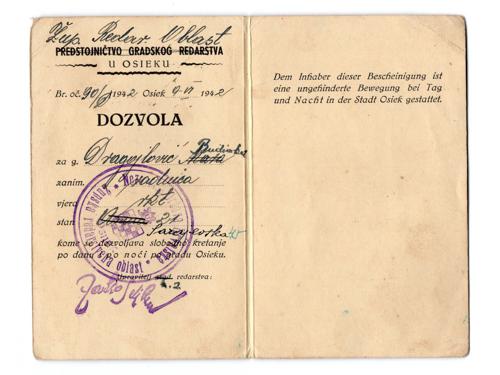 Žup. Redar. Oblast
PREDSTOJNIČTVO GRADSKOG REDARSTVA
U OSIJEKU
Br. oč. 90/ 1942 Osiek 9 VI 1942
DOZVOLA
za g. Dragilović Mara
zanim. radnica
vjera rkt
stan 21
Sarajevska
kome se dozvoljava slobodno kretanje
po danu i po noći po gradu Osieku.
Upravitelj grad. redarstva:
Dem Inhaber dieser Bescheinigung ist
eine ungehinderte Bewegung bei Tag
und Nacht in der Stadt Osiek gestattet.